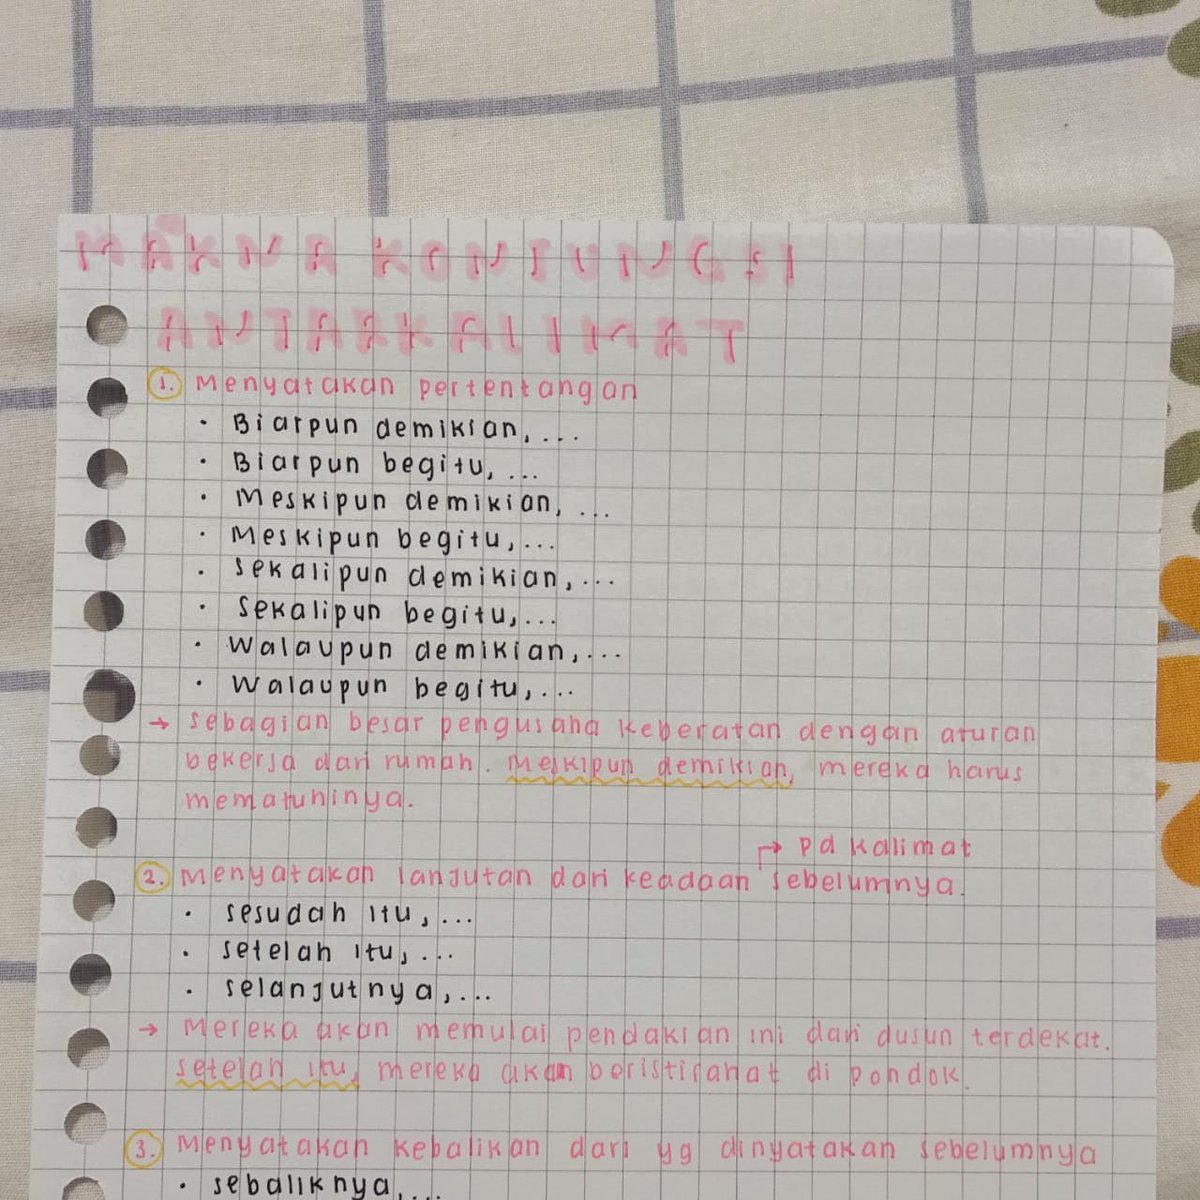 MAKNA KONJUNGSI
ANTARKALIMAT
1. Menyatakan pertentangan
· Biarpun demikian, ...
· Biarpun begitu, ...
· Meskipun demikian, ...
· Meskipun begitu, ...
· Sekalipun demikian, ...
· Sekalipun begitu, ...
· Walaupun demikian, ...
· Walaupun begitu, ...
→ Sebagian besar pengusaha keberatan dengan aturan
bekerja dari rumah. Meskipun demikian, mereka harus
mematuhinya.
→ pd kalimat
2. Menyatakan lanjutan dari keadaan sebelumnya.
· Sesudah itu, ...
· Setelah itu, ...
· Selanjutnya, ...
→ Mereka akan memulai pendakian ini dari dusun terdekat.
Setelah itu, mereka akan beristirahat di pondok.
3. Menyatakan kebalikan dari yg dinyatakan sebelumnya
· Sebaliknya, ...